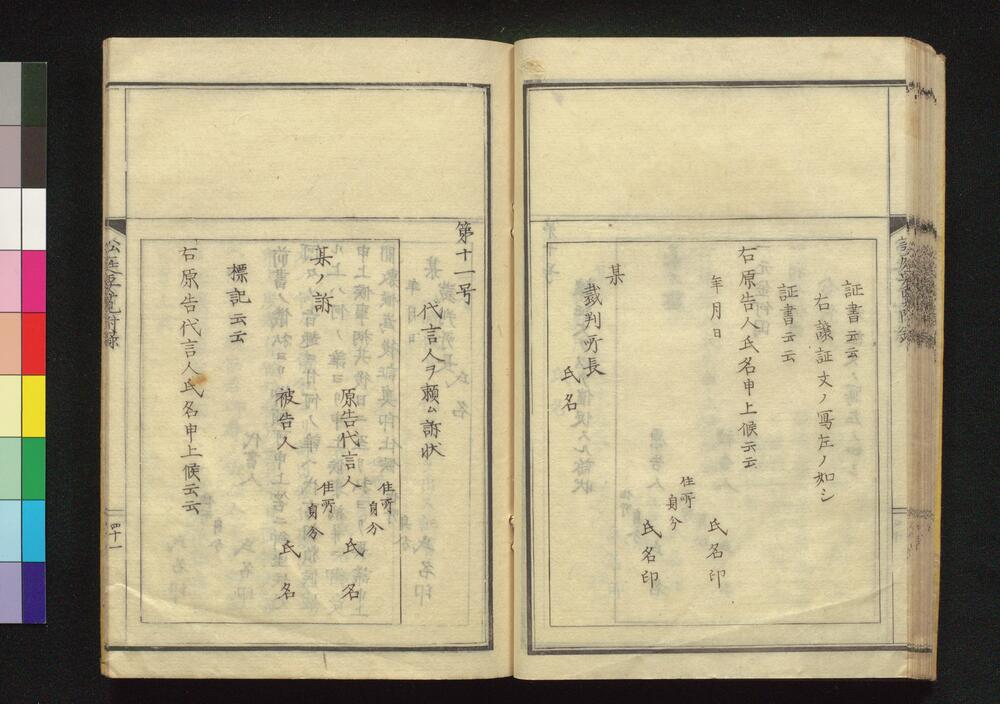 証書云云
右譲証文ノ写左ノ如シ
証書云云
右原告人氏名申上候云云
年月日
氏名印
住所
身分
氏名印
某
裁判所長
氏名
第十一号
代言人ヲ頼ム訴状
某ノ訴
住所
身分
原告代言人 氏名
住所
身分
被告人 氏名
標記云云
右原告代言人氏名申上候云云
四十一